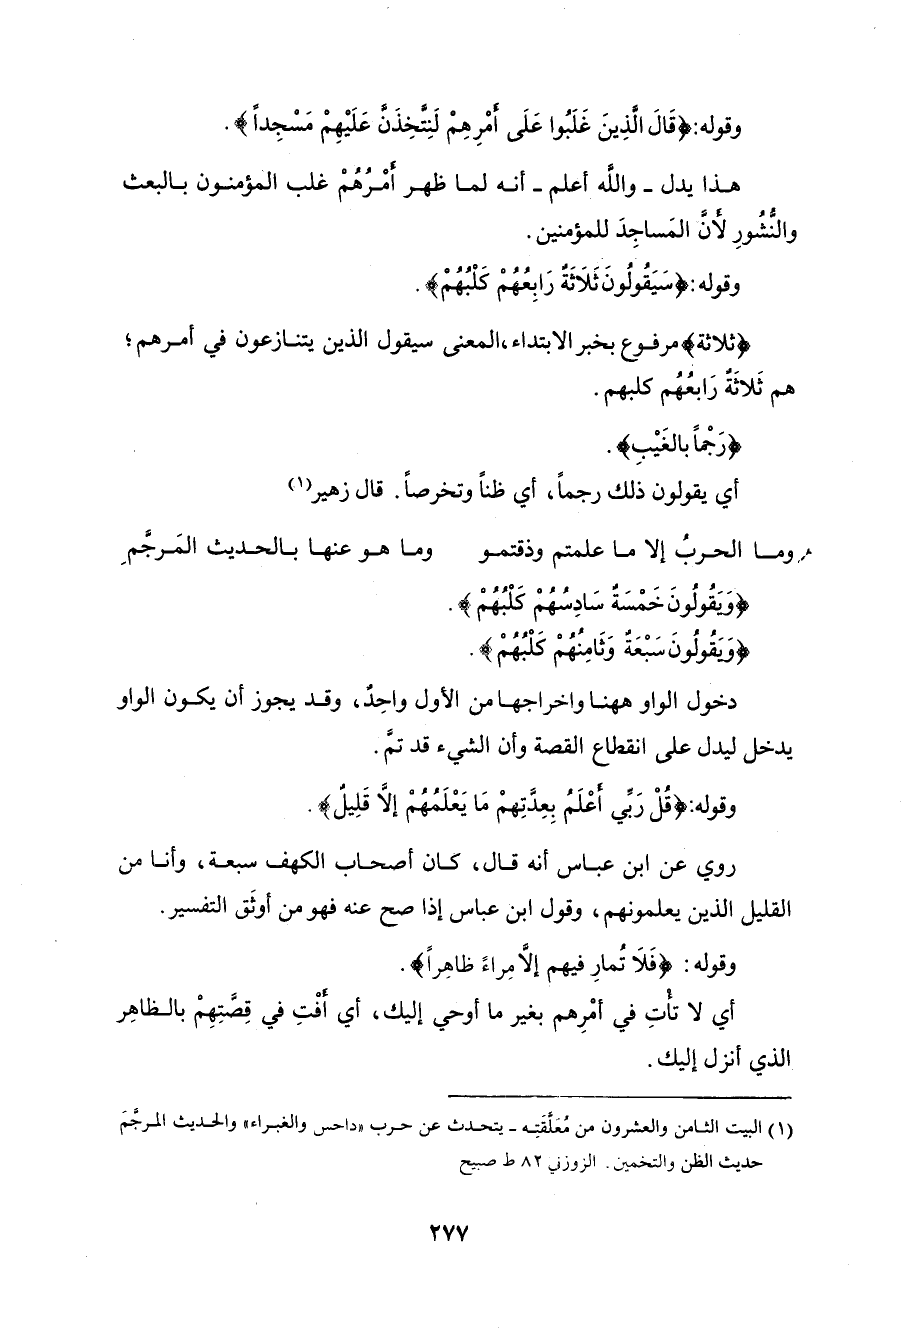 وقوله: ﴿قَالَ الَّذِينَ غَلَبُوا عَلَى أَمْرِهِمْ لَنَتَّخِذَنَّ عَلَيْهِمْ مَسْجِداً﴾.
هذا يدل ـ والله أعلم ـ أنه لما ظهر أَمْرُهُمْ غلب المؤمنون بالبعث
والنُّشُورِ لأَنَّ المَساجِدَ للمؤمنين.
وقوله: ﴿سَيَقُولُونَ ثَلَاثَةٌ رَابِعُهُمْ كَلْبُهُمْ﴾.
﴿ثلاثة﴾ مرفوع بخبر الابتداء، المعنى سيقول الذين يتنازعون في أمرهم؛
هم ثَلاثَةٌ رَابعُهُم كلبهم.
﴿رَجْماً بالغَيْبِ﴾.
أي يقولون ذلك رجماً، أي ظناً وتخرصاً. قال زهير(١)
وما الحربُ إلا ما علمتم وذقتمو وما هو عنها بالحديث المَرجَّمِ
﴿وَيَقُولُونَ خَمْسَةٌ سَادِسُهُمْ كَلْبُهُمْ﴾.
﴿وَيَقُولُونَ سَبْعَةٌ وَثَامِنُهُمْ كَلْبُهُمْ﴾.
دخول الواو ههنا واخراجها من الأول واحِدٌ، وقد يجوز أن يكون الواو
يدخل ليدل على انقطاع القصة وأن الشيء قد تمَّ.
وقوله: ﴿قُلْ رَبِّي أَعْلَمُ بِعِدَّتِهِمْ مَا يَعْلَمُهُمْ إلَّا قَلِيلٌ﴾.
روي عن ابن عباس أنه قال، كان أصحاب الكهف سبعة، وأنا من
القليل الذين يعلمونهم، وقول ابن عباس إذا صح عنه فهو من أوثَق التفسير.
وقوله: ﴿فَلَا تُمارِ فيهم إلَّا مِراءً ظاهِراً﴾.
أي لا تأْتِ في أمْرِهم بغير ما أوحي إليك، أي أَفْتِ في قِصَّتِهِمْ بالظاهِر
الذي أنزل إليك.
(١) البيت الثامن والعشرون من مُعَلَّقَتِه ـ يتحدث عن حرب «داحس والغبراء» والحديث المرجَّمَ
حديث الظن والتخمين. الزوزني ٨٢ ط صبيح
٢٧٧